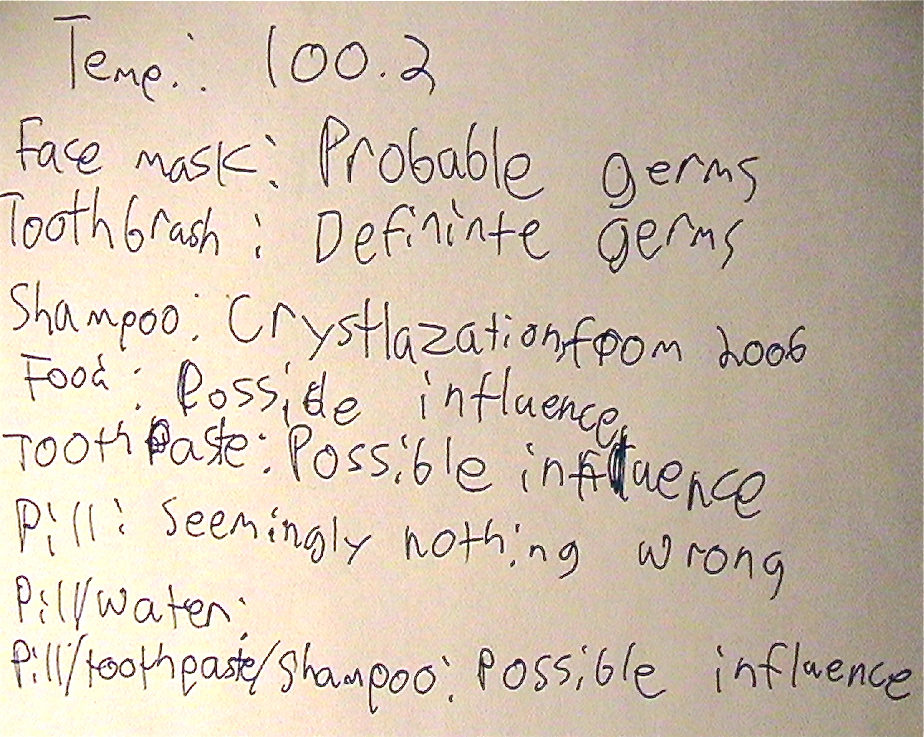 Temp.: 100.2
Face mask: Probable germs
Toothbrash: Defininte germs
Shampoo: Crystlazation from 2006
Food: Posside influence
Toothpaste: Possible influence
Pill: Seemingly nothing wrong
Pill/water:
Pill/toothpaste/Shampoo: Possible influence